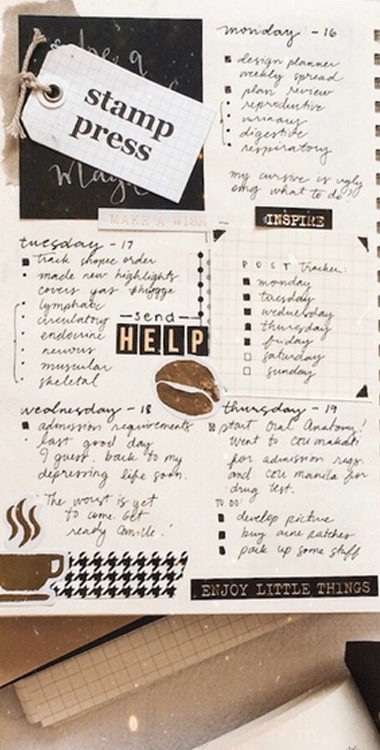 stamp
press
monday - 16
design planner
weekly spread
plan review
reproductive
urinary
digestive
respiratory
my cursive is ugly
omg what to do
MAKE A WISH
INSPIRE
tuesday - 17
track shopee order
made new highlights
covers yas
lymphatic
circulatory
endocrine
nervous
muscular
skeletal
send
HELP
POST Tracker:
monday
tuesday
wednesday
thursday
friday
saturday
sunday
wednesday - 18
admission requirements
last good day
I guess. back to my
depressing life soon.
The worst is yet
to come. Get
ready
thursday - 19
start Oral Anatomy!
went to ceu makati
for admission reqs.
and CEU manila for
drug test.
TO DO:
develop picture
buy acne patches
pack up some stuff
ENJOY LITTLE THINGS